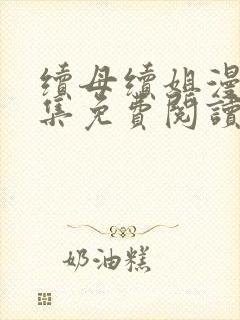 續母續姐漫
集免費閱讀
奶油糕